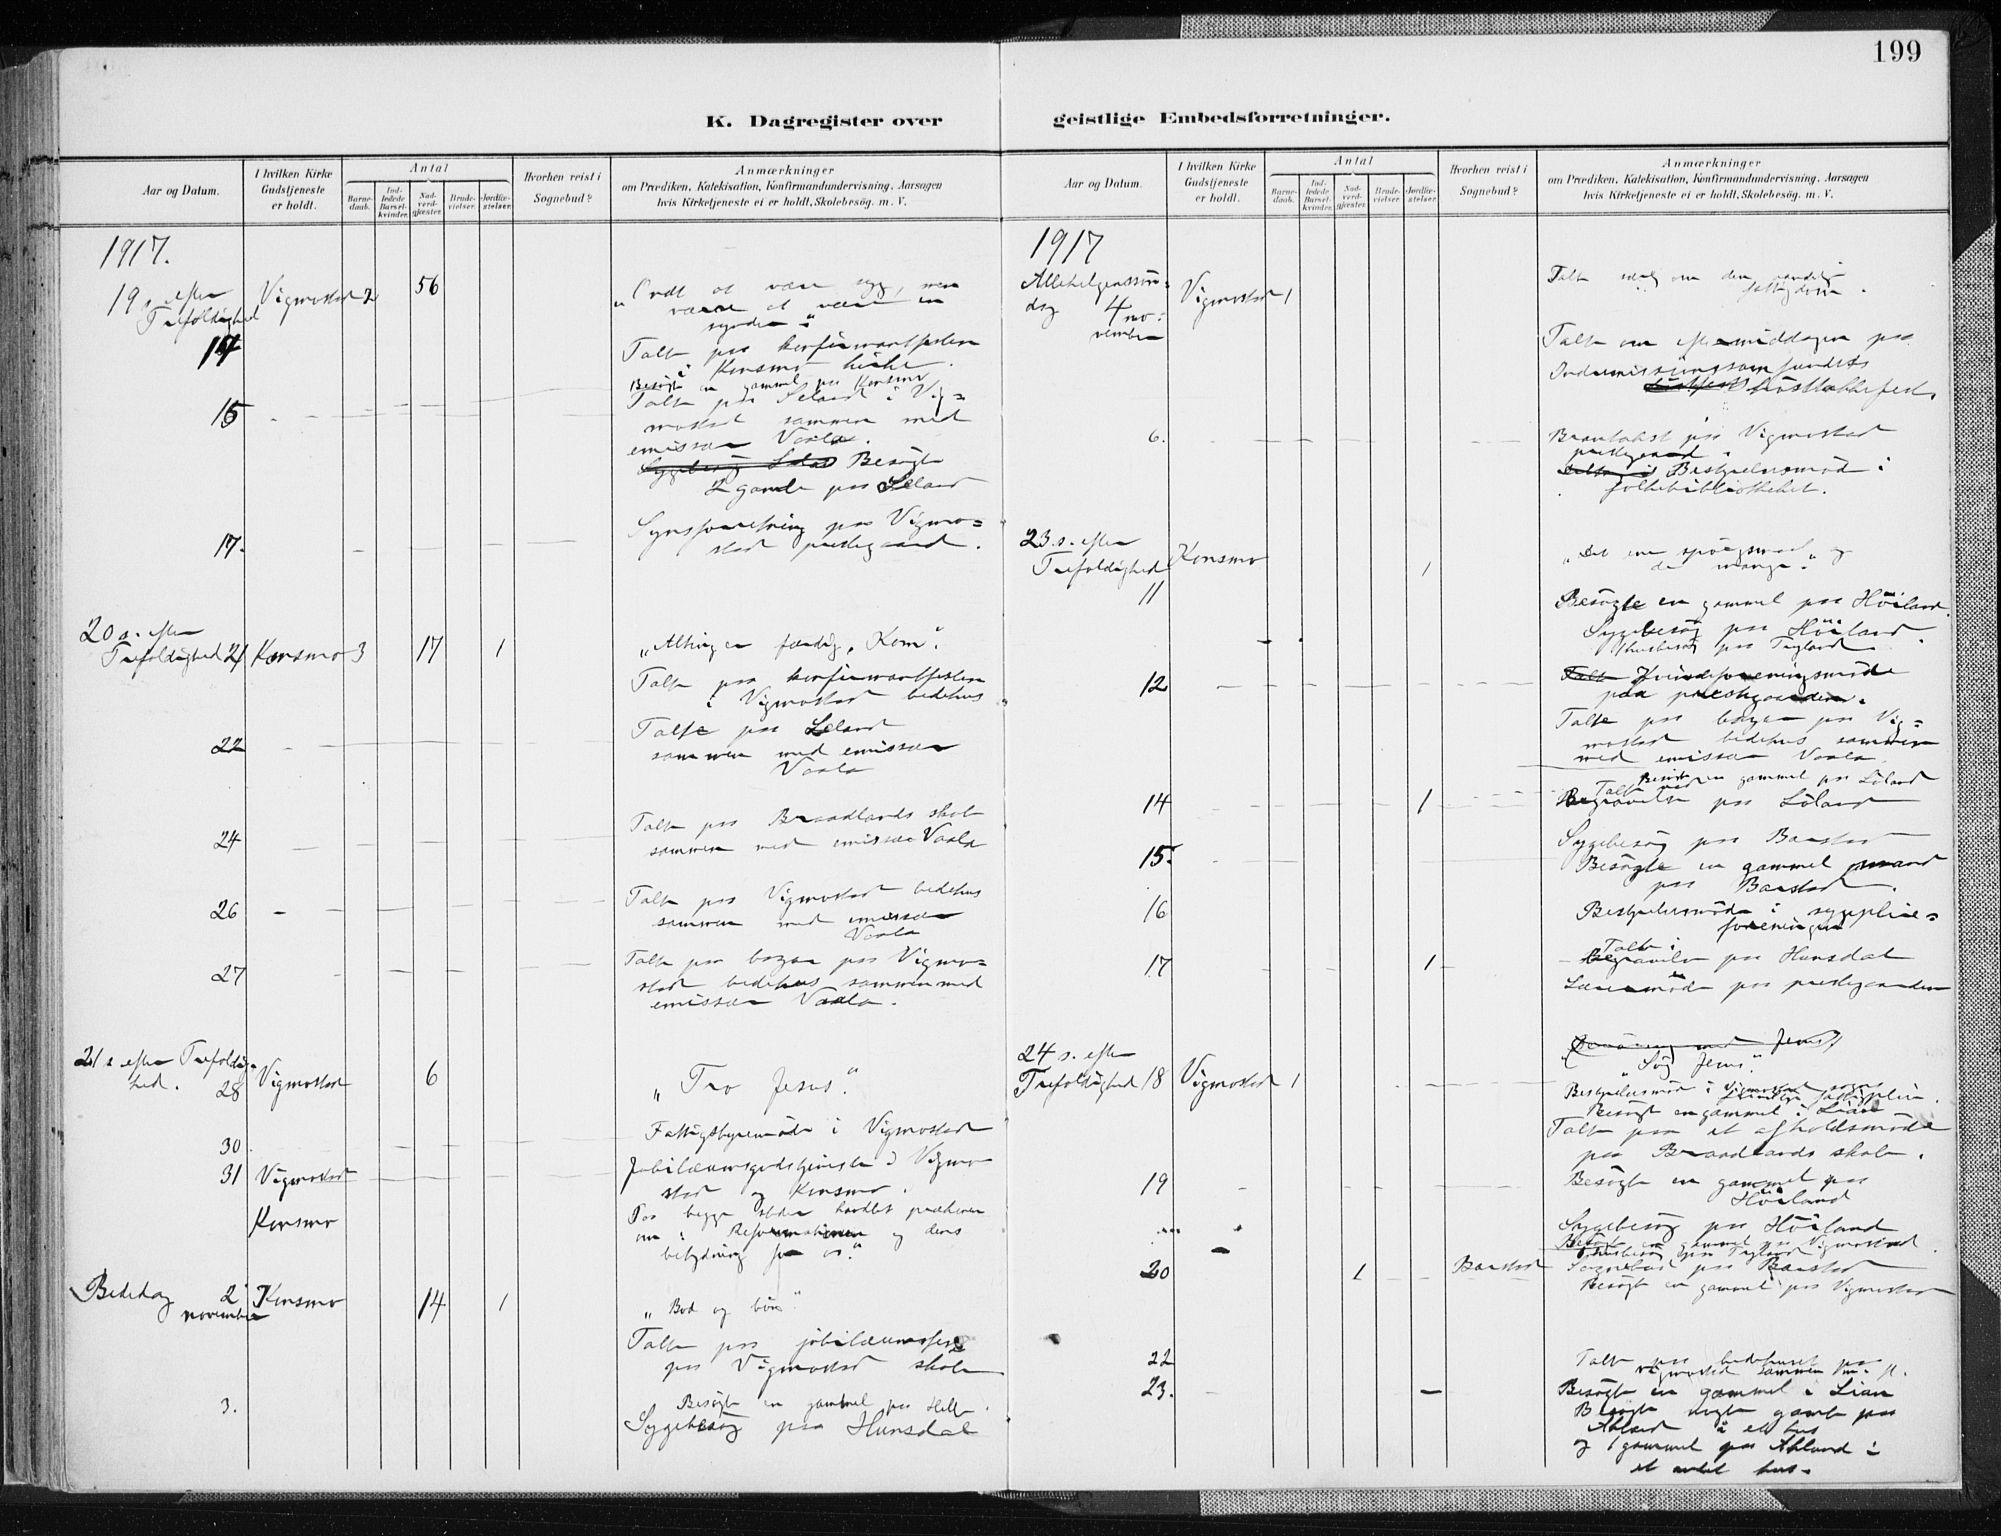 199
K. Dagregister over geistlige Embedsforretninger.
Aar og Datum.
I hvilken Kirke Gudstjeneste er holdt.
Antal
Barnedaab.
Indledede Barselkvinder.
Nadverdgjæster.
Brudevielser.
Jordfæstelser.
Hvorhen reist i Sognebud?
Anmærkninger
om Prædiken, Katekisation, Konfirmandundervisning, Aarsagen
hvis Kirketjeneste ei er holdt, Skolebesög. m. V.
1917.
19 s. efter Vigmostad 2 56 "Ondt at være syg, men
Trefoldighed værre at være en
synder."
14 Talte paa konfirmantfesten
i Konsmo kirke.
Besøgte en gammel paa Konsmo
15 Talte paa Leland i Vig=
mostad sammen med
emissær Vaala.
Besøgte
2 gamle paa Leland
17. Synsforretning paa Vigmo=
stad prestegaard.
20 s. efter
Trefoldighed 21 Konsmo 3 17 1 "Alting er færdig, Kom".
Talte paa konfirmantfesten
i Vigmostad bedehus
22 Talte paa Leland
sammen med emissær
Vaala
24 Talte paa Braadlands skole
sammen med emissær Vaala
26 Talte paa Vigmostad bedehus
sammen med emissær
Vaala
27 Talte paa bazar paa Vigmo=
stad bedehus sammen med
emissær Vaala.
21 s. efter Trefoldig=
hed. 28 Vigmostad 6 "Tro Jesus".
30 Fattigstyremøde i Vigmostad
31 Vigmostad Jubilæumsgudstjeneste i Vigmo
stad og Konsmo.
Konsmo Paa begge steder handlet prækenen
om: Reformationen og dens
betydning for os."
Bededag 2 Konsmo 14 1 "Bod og bøn"
november
Talte paa jubilæumsfest
paa Vigmostad skole
3. Besøgte en gammel paa Helle.
Sygebesøg paa Hunsdal
Aar og Datum.
I hvilken Kirke Gudstjeneste er holdt.
Antal
Barnedaab.
Indledede Barselkvinder.
Nadverdgjæster.
Brudevielser.
Jordfæstelser.
Hvorhen reist i Sognebud?
Anmærkninger
om Prædiken, Katekisation, Konfirmandundervisning, Aarsagen
hvis Kirketjeneste ei er holdt, Skolebesög. m. V.
1917
Allehelgenssøn=
dag 4 no= Vigmostad 1 Talte om den aandelige
vember fattigdom.
Talte om eftermiddagen paa
Indremissionssamfundets
høsttakkefest.
6. Branntakst paa Vigmostad
prestegaard.
Bestyrelsesmøde i
folkebibliotheket.
23. s. efter
Trefoldighed Konsmo 1 "Det ene spørgsmaal og
de mange."
11 Besøgte en gammel paa Høiland.
Sygebesøg paa Høiland.
Husbesøg paa Trygland.
12 Kvindeforeningsmøde
paa prestegaarden.
Talte paa bazar paa Vig=
mostad bedehus sammen
med emissær Vaala.
Besøgte en gammel paa Løland
14 1 Talte ved
Begravelse paa Løland
Sygebesøg paa Baastad
15. Besøgte en gammel mand
paa Baastad.
16 Bestyrelsesmøde i sygepleie=
foreningen
17 1 Talte i
Begravelse paa Hunsdal
Lærermøde paa prestegaarden
24 s. efter
Trefoldighed 18 Vigmostad 1 "Søg Jesus".
Bestyrelsesmøde i Vigmostad sogns
Besøgte en gammel i Lian
Talte paa et afholdsmøde
paa Braadlands skole.
19 Besøgte en gammel paa
Høiland
Sygebesøg paa Høiland
Besøgte en gammel paa Vigmostad
Husbesøg paa Trygland
20 1 Baastad Sognebud paa Baastad
Besøgte en gammel paa Vigmostad
22 Talte paa bedehuset paa
Vigmostad sammen m. fl.
23. Besøgte en gammel i Lian
Besøgte nogle gamle paa
Abland i et hus
og 1 gammel paa Abland i
et andet hus.